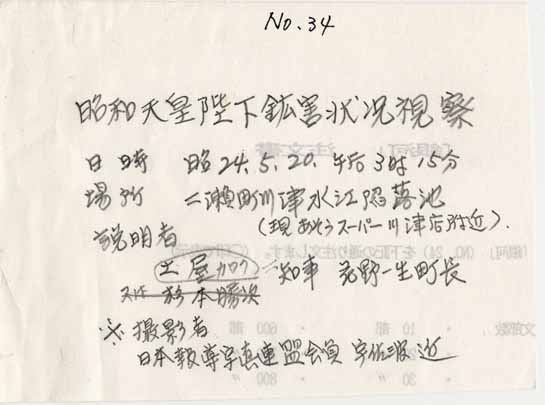 No. 34
昭和天皇陛下鉱害状況視察
日時 昭24.5.20.午后3時15分
場所 二瀬町川津水江陥落池
(現あそうスーパー川津店附近).
説明者
土屋 知事 野一生町長
本勝次
※撮影者
日本報導写真連盟会員 宇佐 近